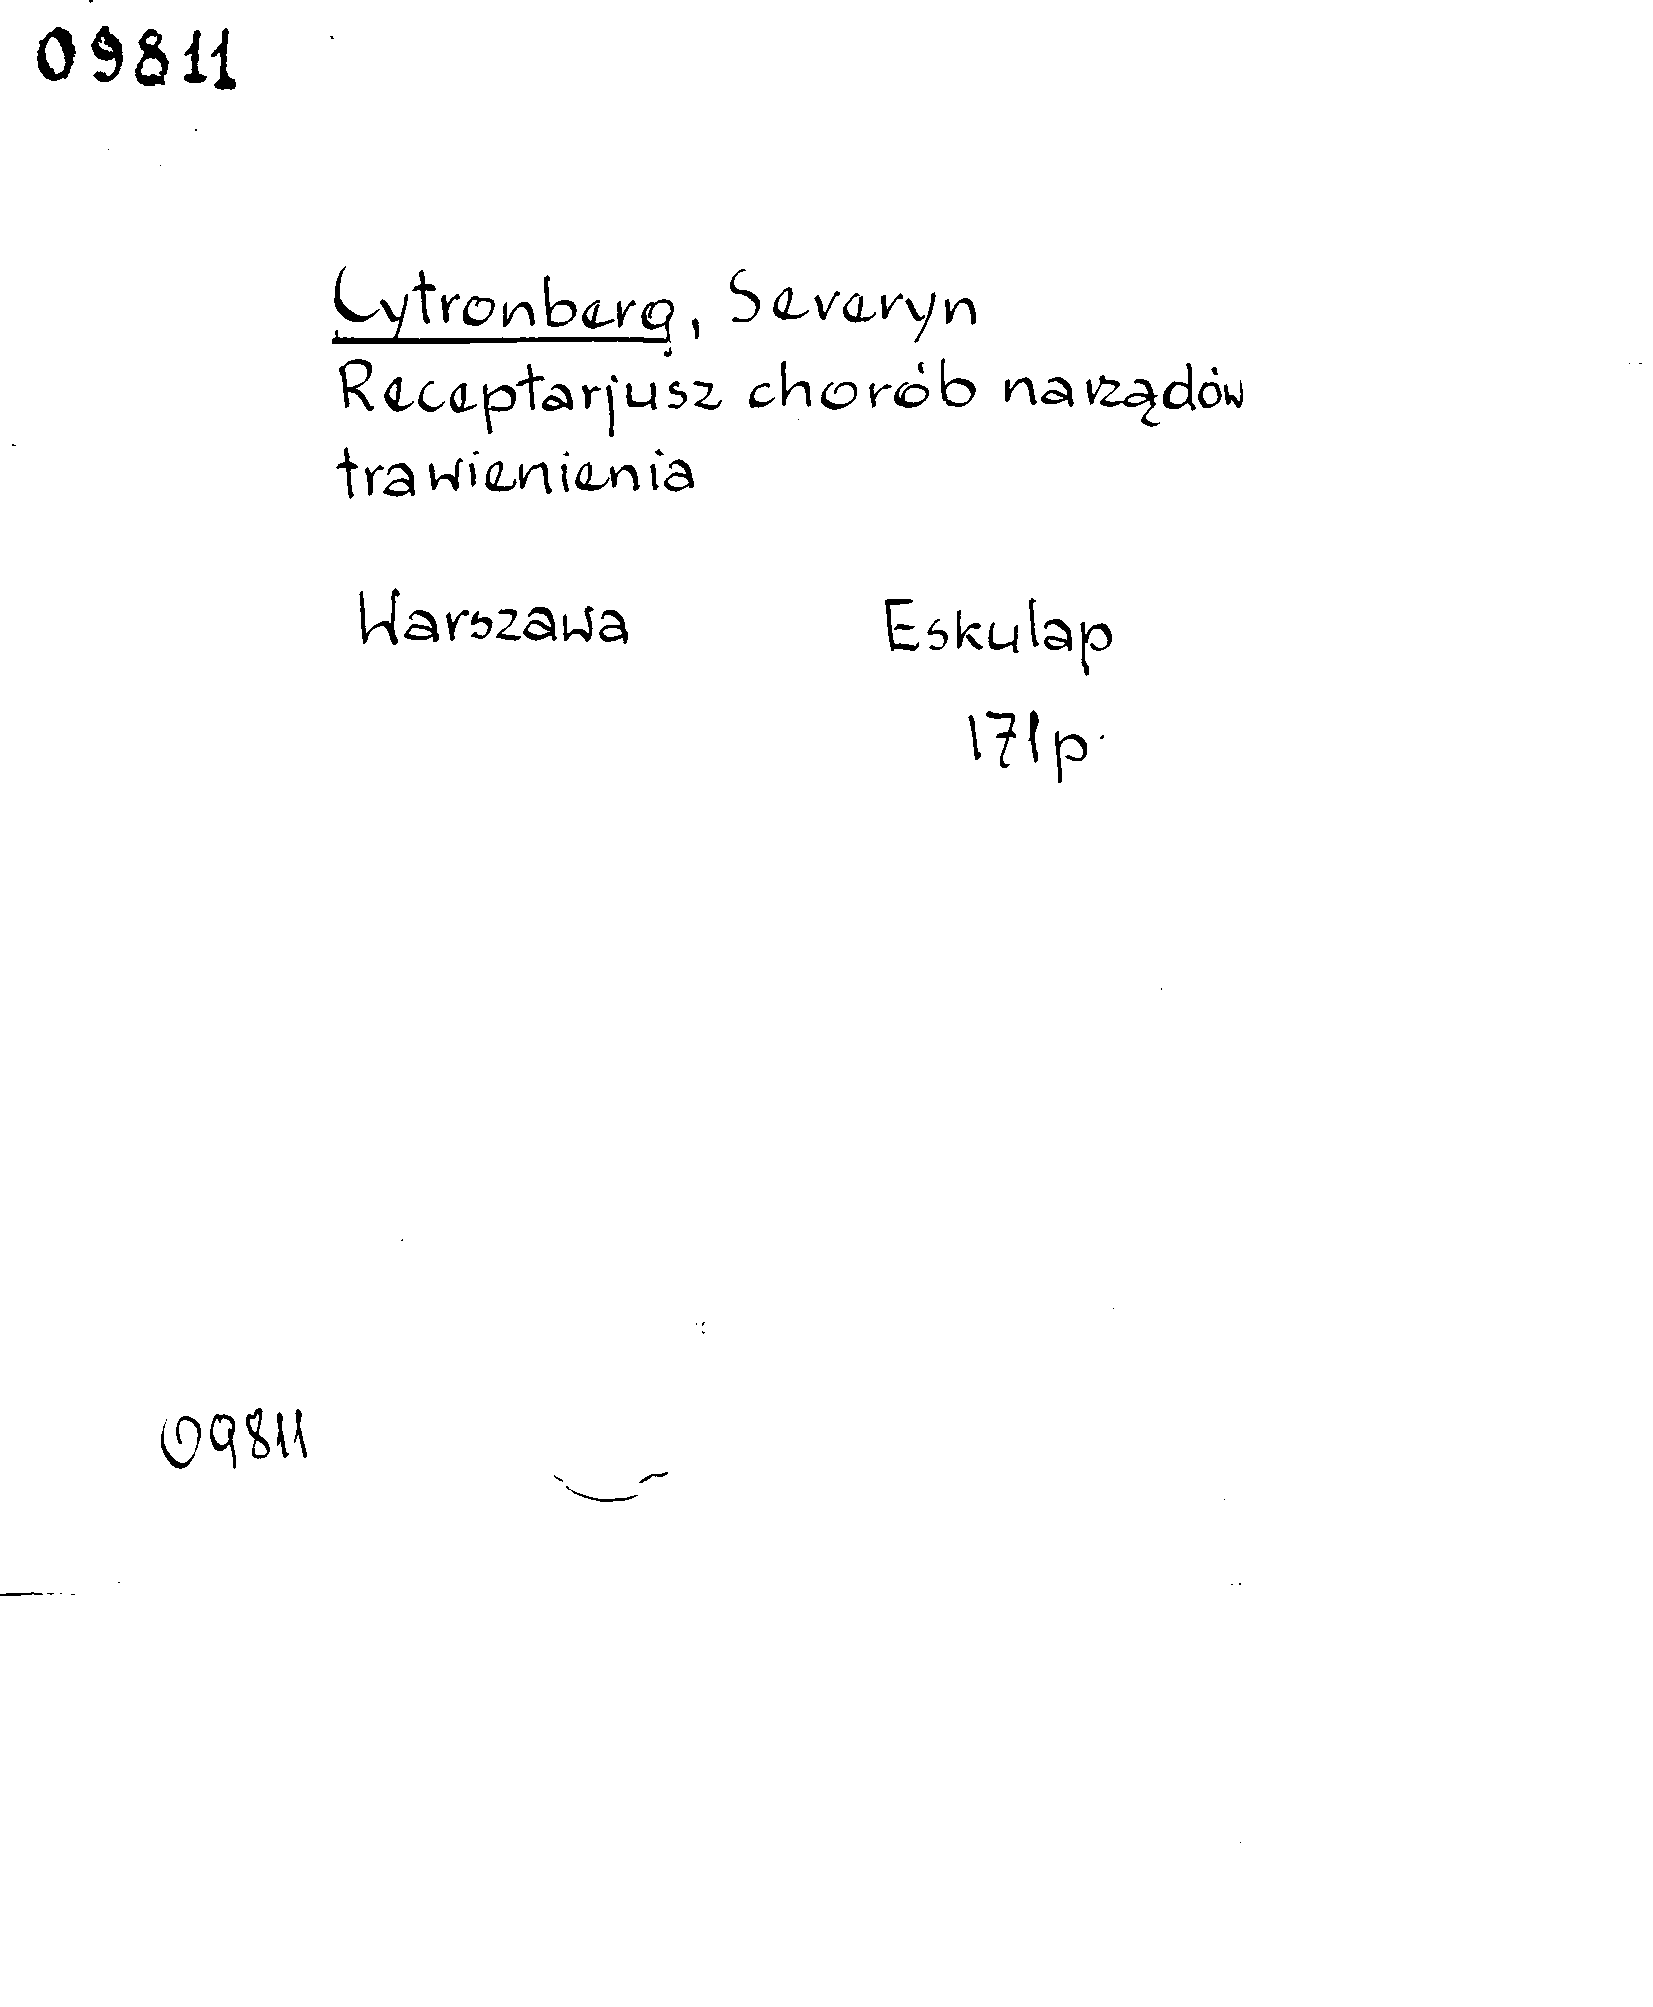 09811
Cytronberg, Severyn
Receptarjusz chorób narządów
trawienienia
Warszawa Eskulap
171p.
09811